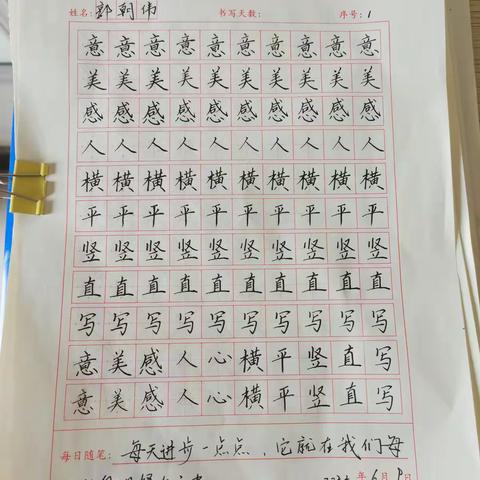 姓名: 郭朝伟 书写天数: 序号: 1
意意意意意意意意意意
美美美美美美美美美美
感感感感感感感感感感
人人人人人人人人人人
横横横横横横横横横横
平平平平平平平平平平
竖竖竖竖竖竖竖竖竖竖
直直直直直直直直直直
写写写写写写写写写写
意美感人心横平竖直写
意美感人心横平竖直写
每日随笔: 每天进步一点点，它就在我们每
年6月9日